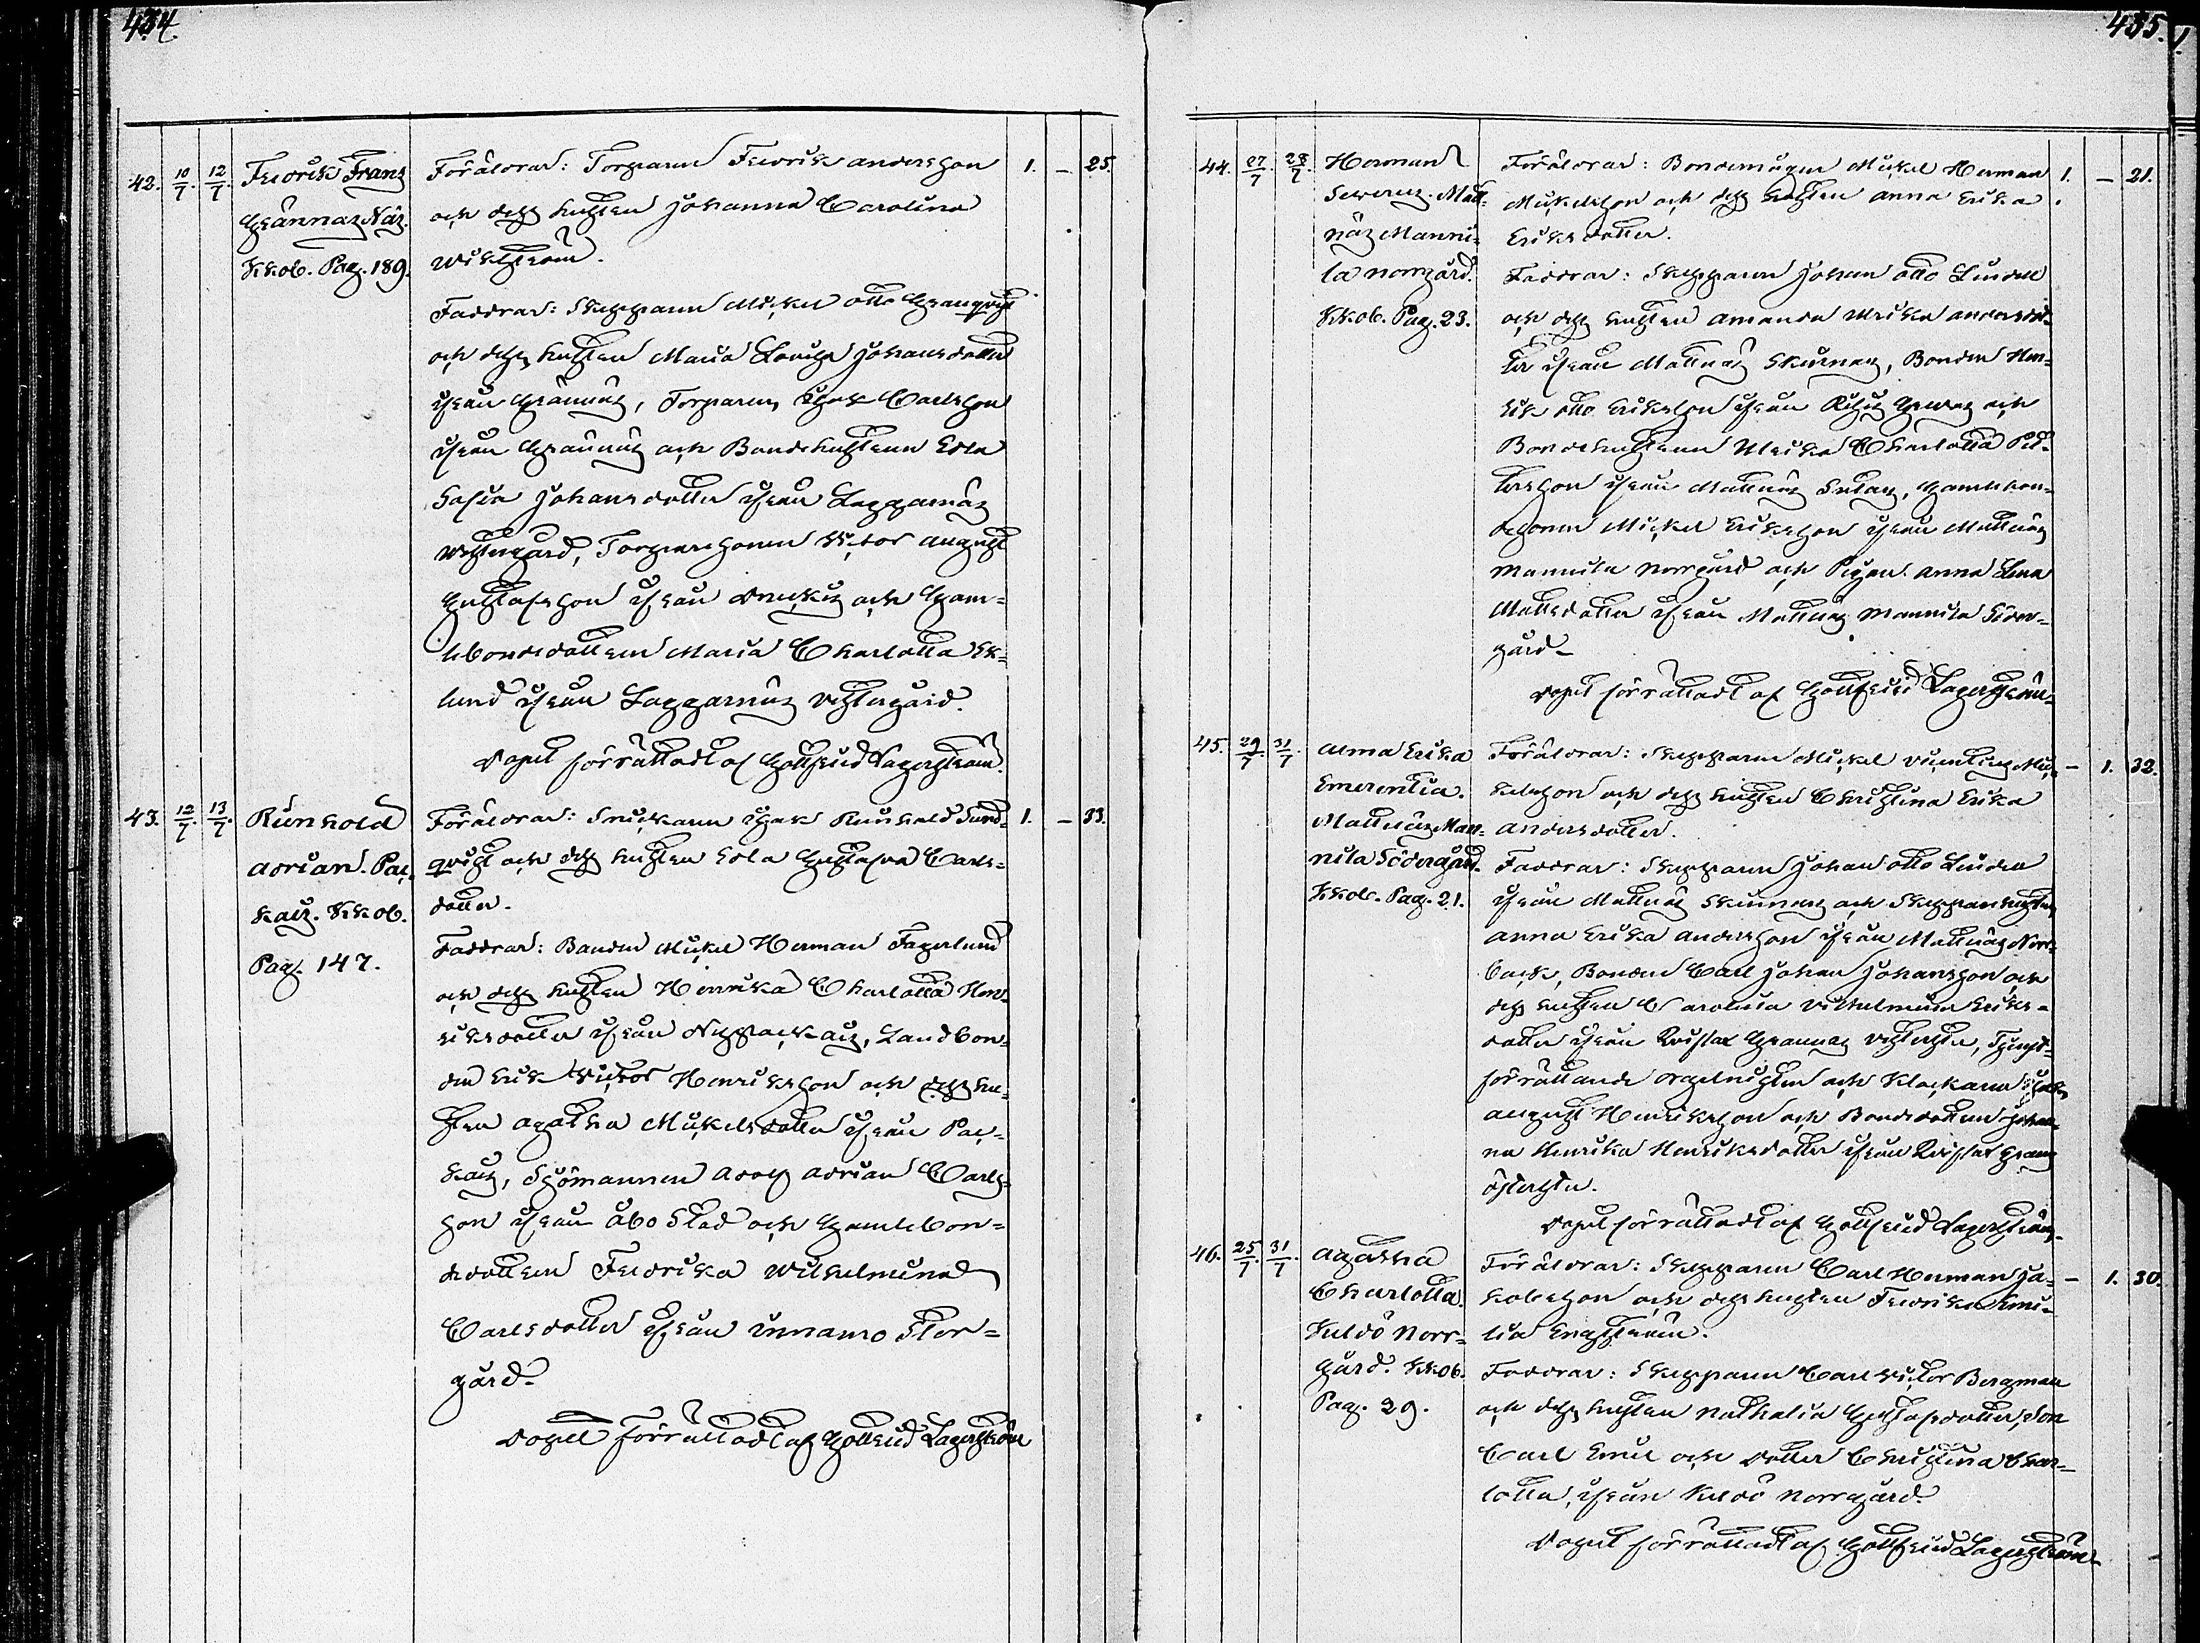 434.
42. 10/7. 12/7. Fredrik Franz
Grännäs Näs.
Kkob. Pag. 189.
Föräldrar: Torparen Fredrik Andersson 1. — 25.
och dess hustru Johanna Carolina
Wikström.
Faddrar: Skepparen Mickel Otto Granqvist
och dess hustru Maria Lovisa Johansdotter
ifrån Grännäs, Torparen Isak Carlsson
ifrån Grännäs och Bondehustrun Edla
Sofia Johansdotter ifrån Lapparnäs
Westergård, Torparesonen Victor August
Gustafsson ifrån och Gam-
lebondedottren Maria Charlotta Ek-
lund ifrån Lapparnäs Vestergård.
Dopet förrättadt af Gottfrid Lagerström.
43. 12/7. 13/7. Reinhold
Adrian. Pac-
kais. Kkob.
Pag. 147.
Föräldrar: Snickaren Isak Reinhold Sund- 1. — 33.
qvist och dess hustru Edla Gustafva Carls-
dotter.
Faddrar: Bonden Mickel Herman Fagerlund
och dess hustru Henrika Charlotta Hen-
riksdotter ifrån Landbon-
den Erik Victor Henriksson och dess hu-
stru Agatha Mickelsdotter ifrån Pac-
kais, Sjömannen Adolf Adrian Carls-
son ifrån Åbo Stad och Gamlebon-
dedottren Fredrika Wilhelmina
Carlsdotter ifrån Innamo Stor-
gård.
Dopet förrättadt af Gottfrid Lagerström
435.
44. 27/7. 28/7. Herman
Severus. Matt-
näs Manni-
la norrgård.
Kkob. Pag. 23.
Föräldrar: Bondemågen Mickel Herman 1. — 21.
Mickelsson och dess hustru Anna Erika
Eriksdotter.
Faddrar: Skepparen Johan Otto Linden
och dess hustru Amanda Ulrika Andersdot-
ter ifrån Mattnäs Skinnars, Bonden Hen-
rik Otto Eriksson ifrån och
Bondehustrun Ulrika Charlotta Pet-
tersson ifrån Mattnäs Gamlebon-
desonen Mickel Eriksson ifrån Mattnäs
Mannila Norrgård och Pigan Anna Lena
Mattsdotter ifrån Mattnäs Mannila Söder-
gård.
Dopet förrättadt af Gottfrid Lagerström.
45. 29/7. 31/7. Alma Erika
Emerentia.
Mattnäs Man-
nila Södergård.
Kkob. Pag. 21.
Föräldrar: Skepparen Mickel Mic- — 1. 32.
kelsson och dess hustru Christina Erika
Andersdotter.
Faddrar: Skepparen Johan Otto Linden
ifrån Mattnäs Skinnars och Skepparehustrun
Anna Erika Andersson ifrån Mattnäs Norr-
back, Bonden Carl Johan Johansson och
dess hustru Carolina Vilhelmina Eriks-
dotter ifrån Grannas Tjenst-
förrättande Orgelnisten och Klockaren Isak
August Henriksson och Bondedottren Johan-
na Henrika Henriksdotter ifrån
Dopet förrättadt af Gottfrid Lagerström.
46. 25/7. 31/7. Agatha
Charlotta.
Kuldö Norr-
gård. Kkob.
Pag. 29.
Föräldrar: Skepparen Carl Herman Ja- — 1. 30.
kobsson och dess hustru Fredrika Emi-
lia Engström.
Faddrar: Skepparen Carl Victor Bergman
och dess hustru Nathalia Gustafsdotter, Son
Carl Emil och dotter Christina Char-
lotta, ifrån Kuldö Norrgård.
Dopet förrättadt af Gottfrid Lagerström.